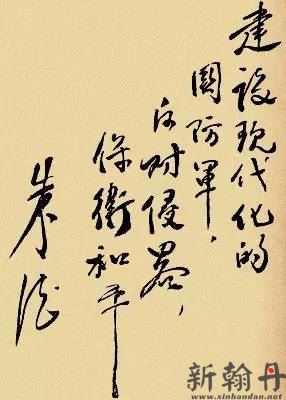 建设现代化的
国防军，
反对侵略，
保衛和平
朱德
新翰丹
www.xinhandan.net